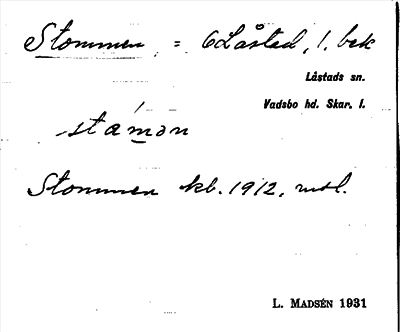 Stommen = 6 Låstad, 1. bek
Låstads sn.
Vadsbo hd. Skar. l.
stámən
Stommen kb. 1912, msl.
L. MADSÉN 1931